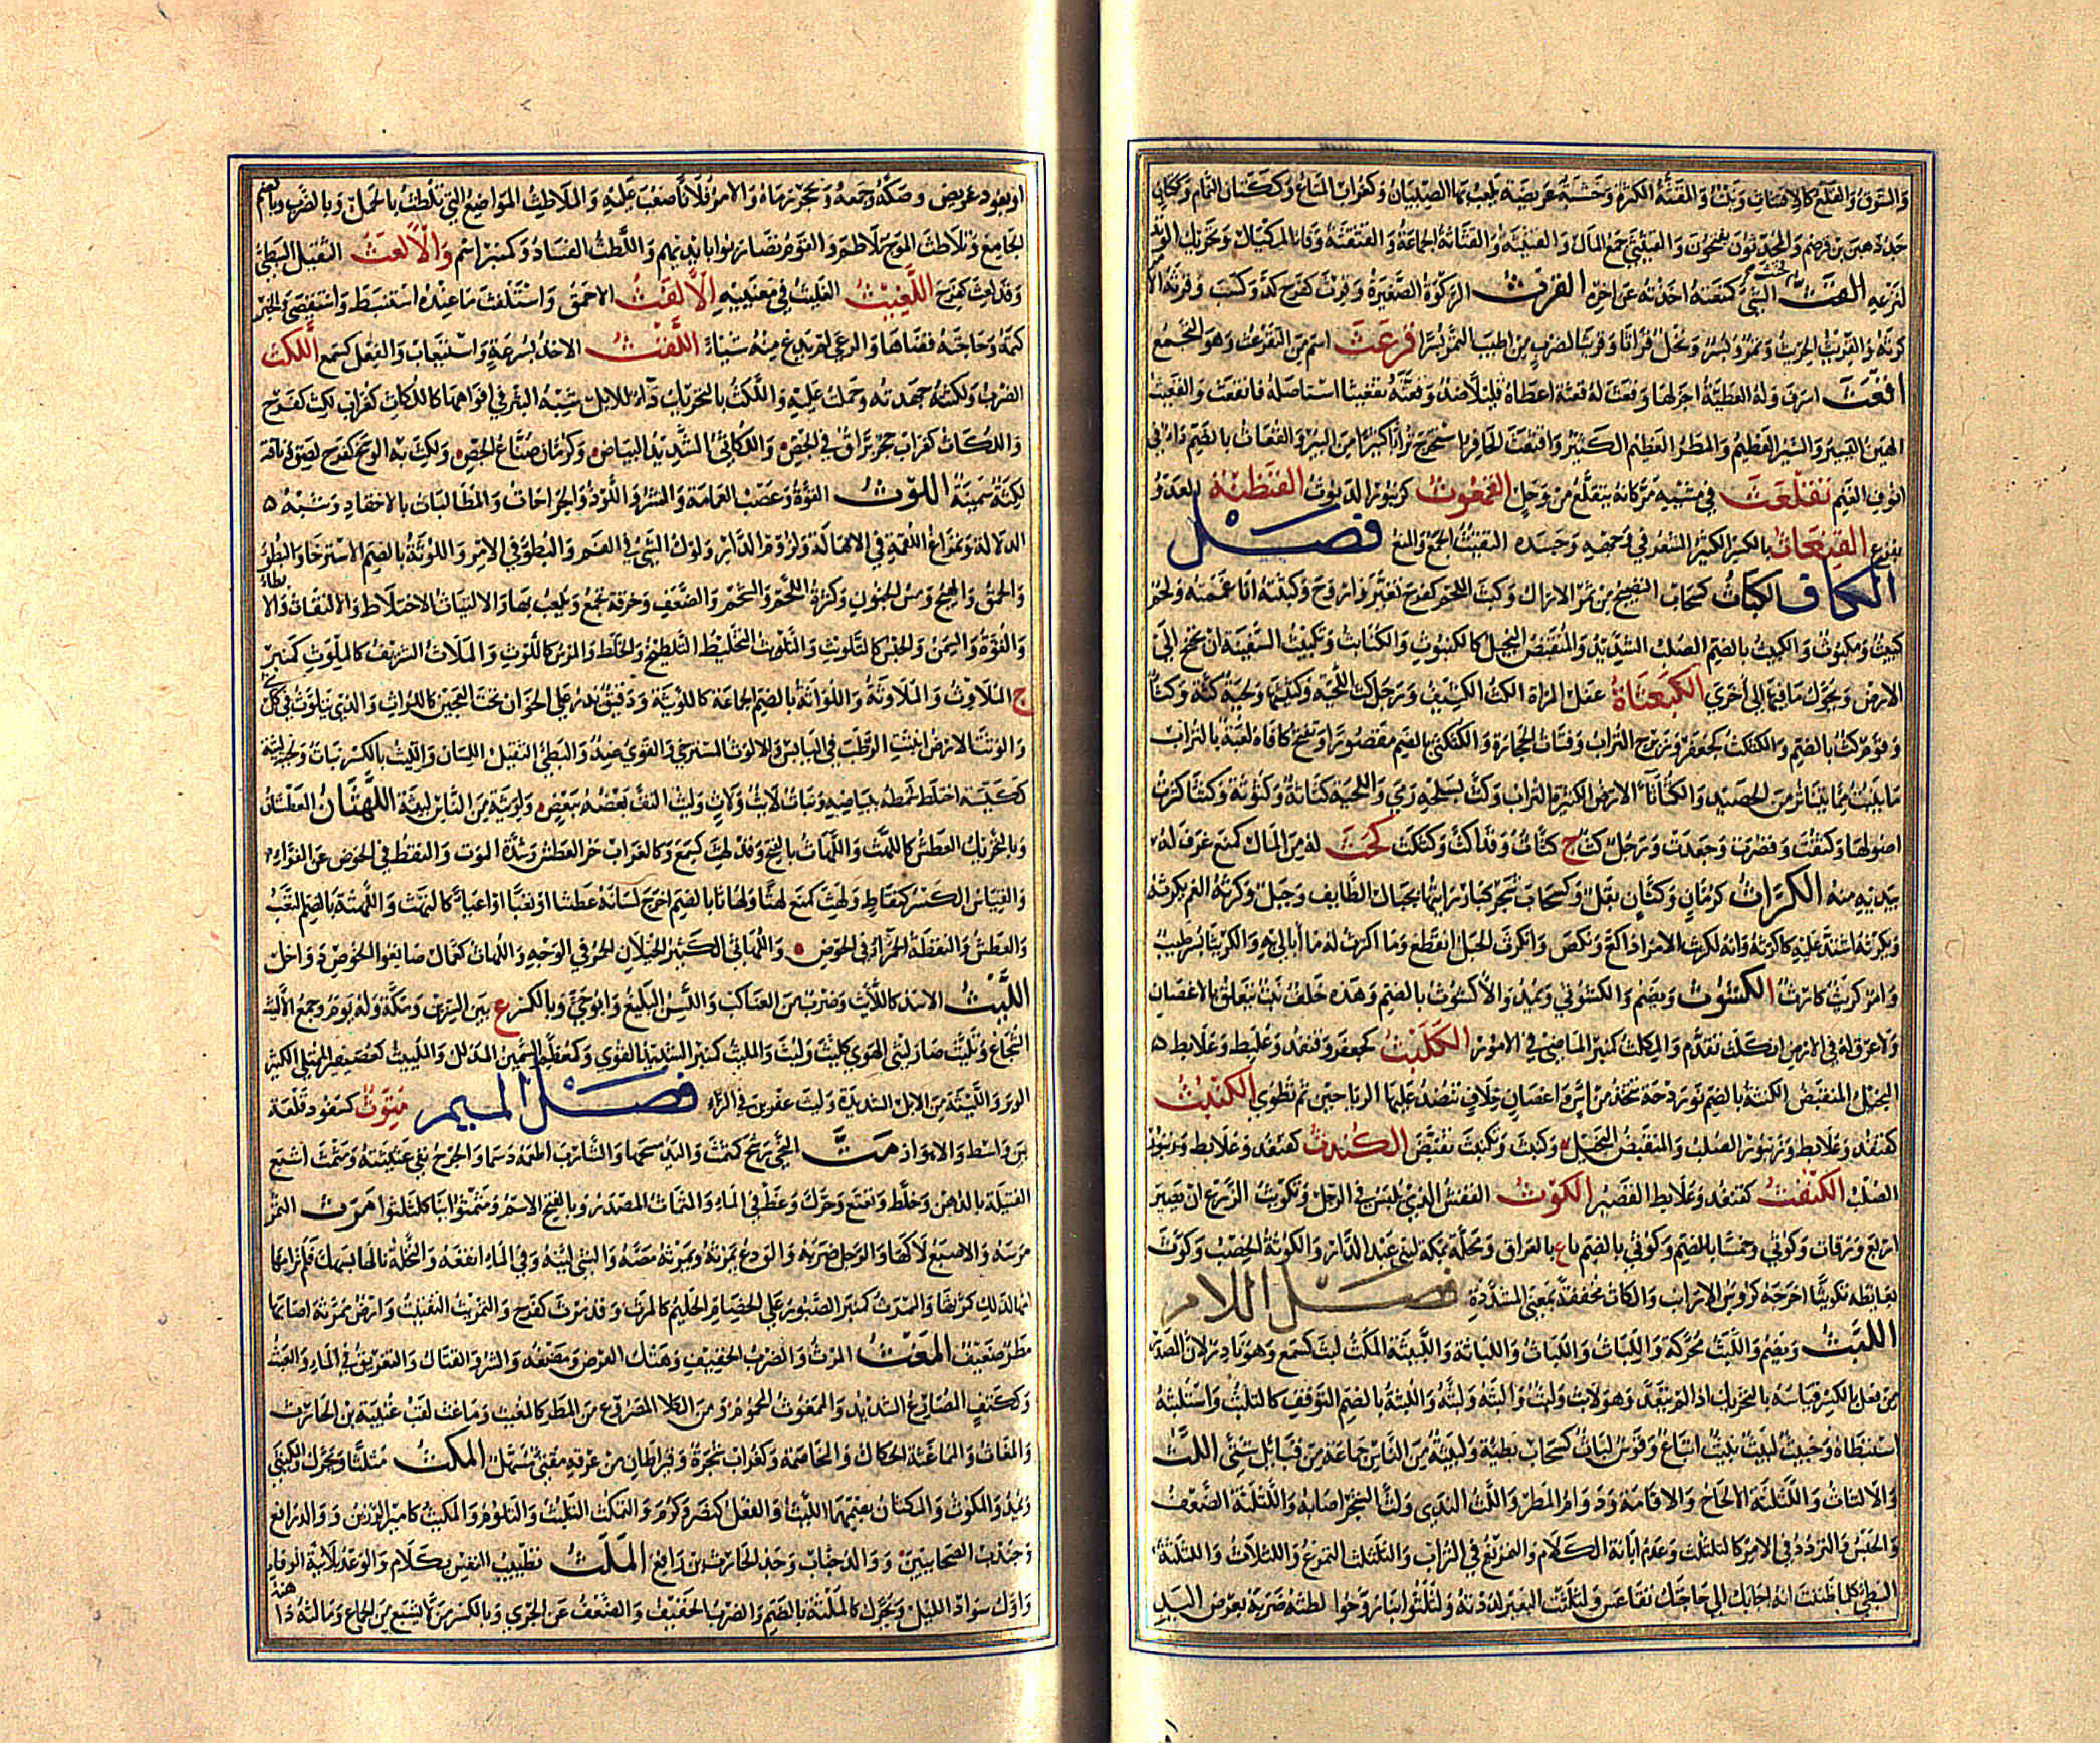 والسوق والقلع كالاقتثاث ونبت والمقثة الكثرة وخشبة عريضة يلعب بها الصبيان وكغراب المتاع وككتان النمام
والقثيثى جمع المال والقثيثة والقثاثة الجماعة والقثقثة وفاء المكيال وتحريك الوتد
لنزعه القحث الشيء كمنعته اخذته عن اخره القرث الركوة الصغيرة وقرث كفرح كد وكسب وقرثه الامر
كرثه والقريث الجريث وتمر وبسر ونخل قراثا وقريثا لضرب من اطيب التمر بسرا قرعث اسم من التقرعث وهو التجمع
اقعث اسرف وله العطية اجزلها وقعث له قعثة اعطاه قليلا ضد وقعثه تقعيثا استاصله فانقعث والقعيث
الهين اليسير والسيل العظيم والمطر العظيم الكثير واقتعث الحافر استخرج ترابا كثيرا من البئر والقعاث بالضم داء في
انوف الغنم تقلعث في مشيه مر كانه يتقلع من وحل القمعوث كزنبور الديوث القنطثة العدو
بفزع القيعاث بالكسر الكثير الشعر في وجهه وجسده التقيث الجمع والمنع فصل
الكاف الكباث كسحاب النضيج من ثمر الاراك وكبث اللحم كفرح تغير واروح وكبثته انا غممته ولحم
كبيث ومكبوث والكبث بالضم الصلب الشديد والمنقبض البخيل كالكنبوث والكنابث وتكبيث السفينة ان تجنح الى
الارض ويحول ما فيها الى اخرى الكبعثاة عفل المراة الكث الكثيف ورجل كث اللحية وكثيثها ولحية كثة وكثاء
وقوم كث بالضم والكثكث كجعفر وزبرج التراب وفتات الحجارة والكثكثى بالضم مقصورا وتفتح كافاه لعبة بالتراب
ما ينبت مما يتناثر من الحصيد والكثاثاء الارض الكثيرة التراب وكث بسلحه رمى واللحية كثاثة وكثوثة وكثثا كثرت
اصولها وكثفت وقصرت وجعدت ورجل كث ج كثاث وقد اكث وكثكث كحث له من المال كمنع غرف له
بيديه منه الكراث كرمان وكتان بقل وكسحاب شجر كبار رايتها بجبال الطايف وجبل وكرثه الغم يكرثه
ويكرثه اشتد عليه كاكرثه وانه لكريث الامر اذا كع ونكص وانكرث الحبل انقطع وما اكترث له ما ابالي به والكريثا بسر طيب
وامر كريث كارث الكشوث ويضم والكشوثى ويمد والاكشوث بالضم وهذه خلف نبت يتعلق بالاغصان
ولا عرق له في الارض انكلث تقدم والمكلث كمنبر الماضي في الامور الكلبث كجعفر وقنفذ وعلبط وعلابط
البخيل المنقبض الكنثة بالضم نوردجة تتخذ من آس واغصان خلاف تنضد عليها الرياحين ثم تطوى الكنبث
كقنفذ وعلابط وزنبور الصلب والمنقبض البخيل وكنبث وتكنبث تقبض الكندث كقنفذ وعلابط
الصلب الكنفث كقنفذ وعلابط القصير الكوث القفش الذي يلبس في الرجل وتكويث الزرع ان يصير
اربع ورقات وكوثى وخمسا بالضم وكوثى بالضم باع بالعراق ومحلة بمكة لبني عبد الدار والكوثة الخصب وكوث
بغائطه تكويثا اخرجه كرؤس الارانب والكاث مخففة بمعنى المشددة فصل اللام
اللبث ويضم واللبث محركة واللباث واللباث واللباثة واللبيثة المكث لبث كسمع وهو نادر لان المصدر
من فعل بالكسر قياسه بالتحريك اذا لم يتعد وهو لابث ولبث والبثه ولبثه واللبثة بالضم التوقف كالتلبث واستلبثه
استبطاه وخبيث لبيث نبيث اتباع وقوس لباث كسحاب بطيئة ولبيثة من الناس جماعة من قبائل شتى اللث
والالثاث واللثلثة الالحاح والاقامة ودوام المطر واللث الندى ولث الشجر اصابه واللثلثة الضعف
والحبس والتردد في الامر كالتلثلث وعدم ابانة الكلام والتمريغ في التراب والتلثلث التمرغ واللثلاث واللثلاثة
البطئ كلما ظننت انه اجابك الى حاجتك تقاعس ولثلث البعير لددته ولثلثوا بنا روحوا لطثه ضربه بعرض اليد
او بعود عريض وصكه وجمعه وبحجر رماه والامر فلانا صعب عليه والملاطث المواضع التي تلطث بالحمل وبالضم
الجامع وتلاطث الموج تلاطم والقوم تضاربوا بايديهم واللطث الفساد وكمنبر اسم والالعث الثقيل البطئ
وقد لعث كفرح اللغيث الغليث في معنييه الالفث الاحمق واستلفث ما عنده استنبط واستقصى والخبر
كتمه وحاجته قضاها والرعي لم يدع منه شيئا اللقث الاخذ بسرعة واستيعاب والفعل كسمع اللكث
الضرب ولكثه جهدته وحملت عليه واللكث بالتحريك داء للابل شبه البثر في افواهها كاللكاث كغراب لكث كفرح
واللكاث كغراب حجر براق في الجص واللكاثي الشديد البياض وكرمان صناع الجص ولكث به الوسخ كفرح لصق وناقة
لكثة سمينة اللوث القوة وعصب العمامة والشر واللوذ والجراحات والمطالبات بالاحقاد وشبه
الدلالة وتمراغ اللقمة في الاهالة ولزوم الدار ولوك الشيء في الفم والبطؤ في الامر واللوثة بالضم الاسترخاء والبطؤ
والحمق والهيج ومس الجنون وكثرة اللحم والشحم والضعف وخرقة تجمع ويلعب بها والالتياث الاختلاط والالتفاف والابطاء
والقوة والسمن والحبس كالتلويث والتلويث التخليط التلطيخ والخلط والمرس كاللوث والملاث الشريف كالملوث كمنبر
ج الملاوث والملاوثة واللواثة بالضم الجماعة كاللويثة ودقيق يذر على الخوان تحت العجين كاللواث والذي يتلوث في كل
والوثت الارض انبتت الرطب في اليابس والالوث المسترخي والقوي ضد والبطئ الثقيل اللسان والليث بالكسر نبات ولحية ليثة
ككيسة اختلط شمطه ببياضه ونبات لائث ولاث وليث التف بعضه ببعض ولويثة من الناس لبيثة اللهثان العطشان
وبالتحريك العطش كاللهث واللهاث بالفتح وقد لهث كسمع وكالغراب حر العطش وشدة الموت والنقط في الخوص عن الفراء
والقياس الكسر كنقاط ولهث كمنع لهثا ولهاثا بالضم اخرج لسانه عطشا او تعبا او اعياء كالتهث واللهثة بالضم التعب
والعطش والنقطة الحمراء في الخوص واللهاثي الكثير الخيلان الحمر في الوجه واللهاث كعمال صانعوا الخوص دواخل
الليث الاسد كاللائث وضرب من العناكب واللسن البليغ وابو حي وبالكسر ع بين السرين ومكة وله يوم وجمع الاليث
الشجاع وتليث صار ليثي الهوى كليث وليث والمليث كمنبر الشديد القوي وكمعظم السمين المذلل واللييث كعصيصر المنتلي الكثير
الوبر والليثة من الابل الشديدة وليث عفرين في الراء فصل الميم متوث كسفود قلعة
بين واسط والاهواز مث النحي رشح كتمث واليد مسحها والشارب اطعمه دسما والجرح نفى عنه غثيثته ومثمث اشبع
الفتيلة بالدهن وخلط وتعتع وحرك وغط في الماء والمثماث المصدر وبالفتح الاسم ومثمثوا بنا كلثلثوا مرث التمر
مرسه والاصبع لاكها والرجل ضربه والودع يمرثه ويمرثه مصه والشيء لينه وفي الماء انقعه والسخلة نالها بسهك فلم ترامها
امها لذلك كمرثها والممرث كمنبر الصبور على الخصام الحليم كالمرث وقد مرث كفرح والتمريث التفتيت وارض ممرثة اصابها
مطر ضعيف المغث المرث والضرب الخفيف وهتك العرض ومضغه والشر والقتال والتغريق في الماء والعبث
وككتف المصارع الشديد والممغوث المحموم ومن الكلا المصروع من المطر كالمغيث وماغث لقب عتيبة بن الحارث
والمغاث والمماغثة الحكاك والخاصمة وكغراب شجرة وقيراطان من عرقه مقيئ مسهل المكث مثلثا ويحرك والمكيثى
ويمد والمكوث والمكثان بضمهما اللبث والفعل كنصر وكرم والتمكث التلبث والتلوم والمكيث كامير الرزين ووالد رافع
وجندب الصحابيين ووالد جناب وجد الحارث بن رافع الملث تطييب النفس بكلام والوعد بلا نية الوفاء
واول سواد الليل ويحرك كالملثة بالضم والضرب الخفيف والضعف عن الجري وبالكسر من لا يشبع من الجماع ومالثه